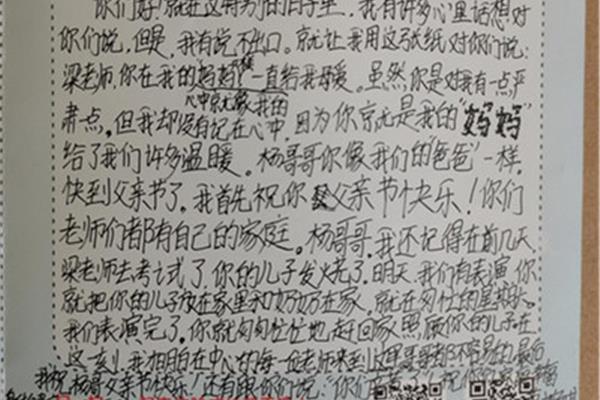 你们好!就在这特别的日子里,我有许多心里话想对
你们说,但是,我有说不出口。就让我用这张纸对你们说:
梁老师,你在我的妈妈,一直给我母爱。虽然你是对我有一点严
心中就像我的
肃一点,但我却没有记在心中,因为你就是我的"妈妈"
给了我们许多温暖。杨哥哥你像我们的"爸爸"一样,
快到父亲节了,我首先祝你父亲节快乐!你们
老师们都有自己的家庭。杨哥哥,我还记得在前几天
梁老师去考试了,你的儿子发烧了,明天,我们有表演,你
就把你的儿子放在家里和奶奶在家,就在匆忙的星期
我们表演完了,你就匆匆忙忙地赶回家照顾你的儿子在
这一刻,我相在中心的每一位老师来到这里都不容易的,最后
我祝杨哥父亲节快乐!还有跟你们说:"你们